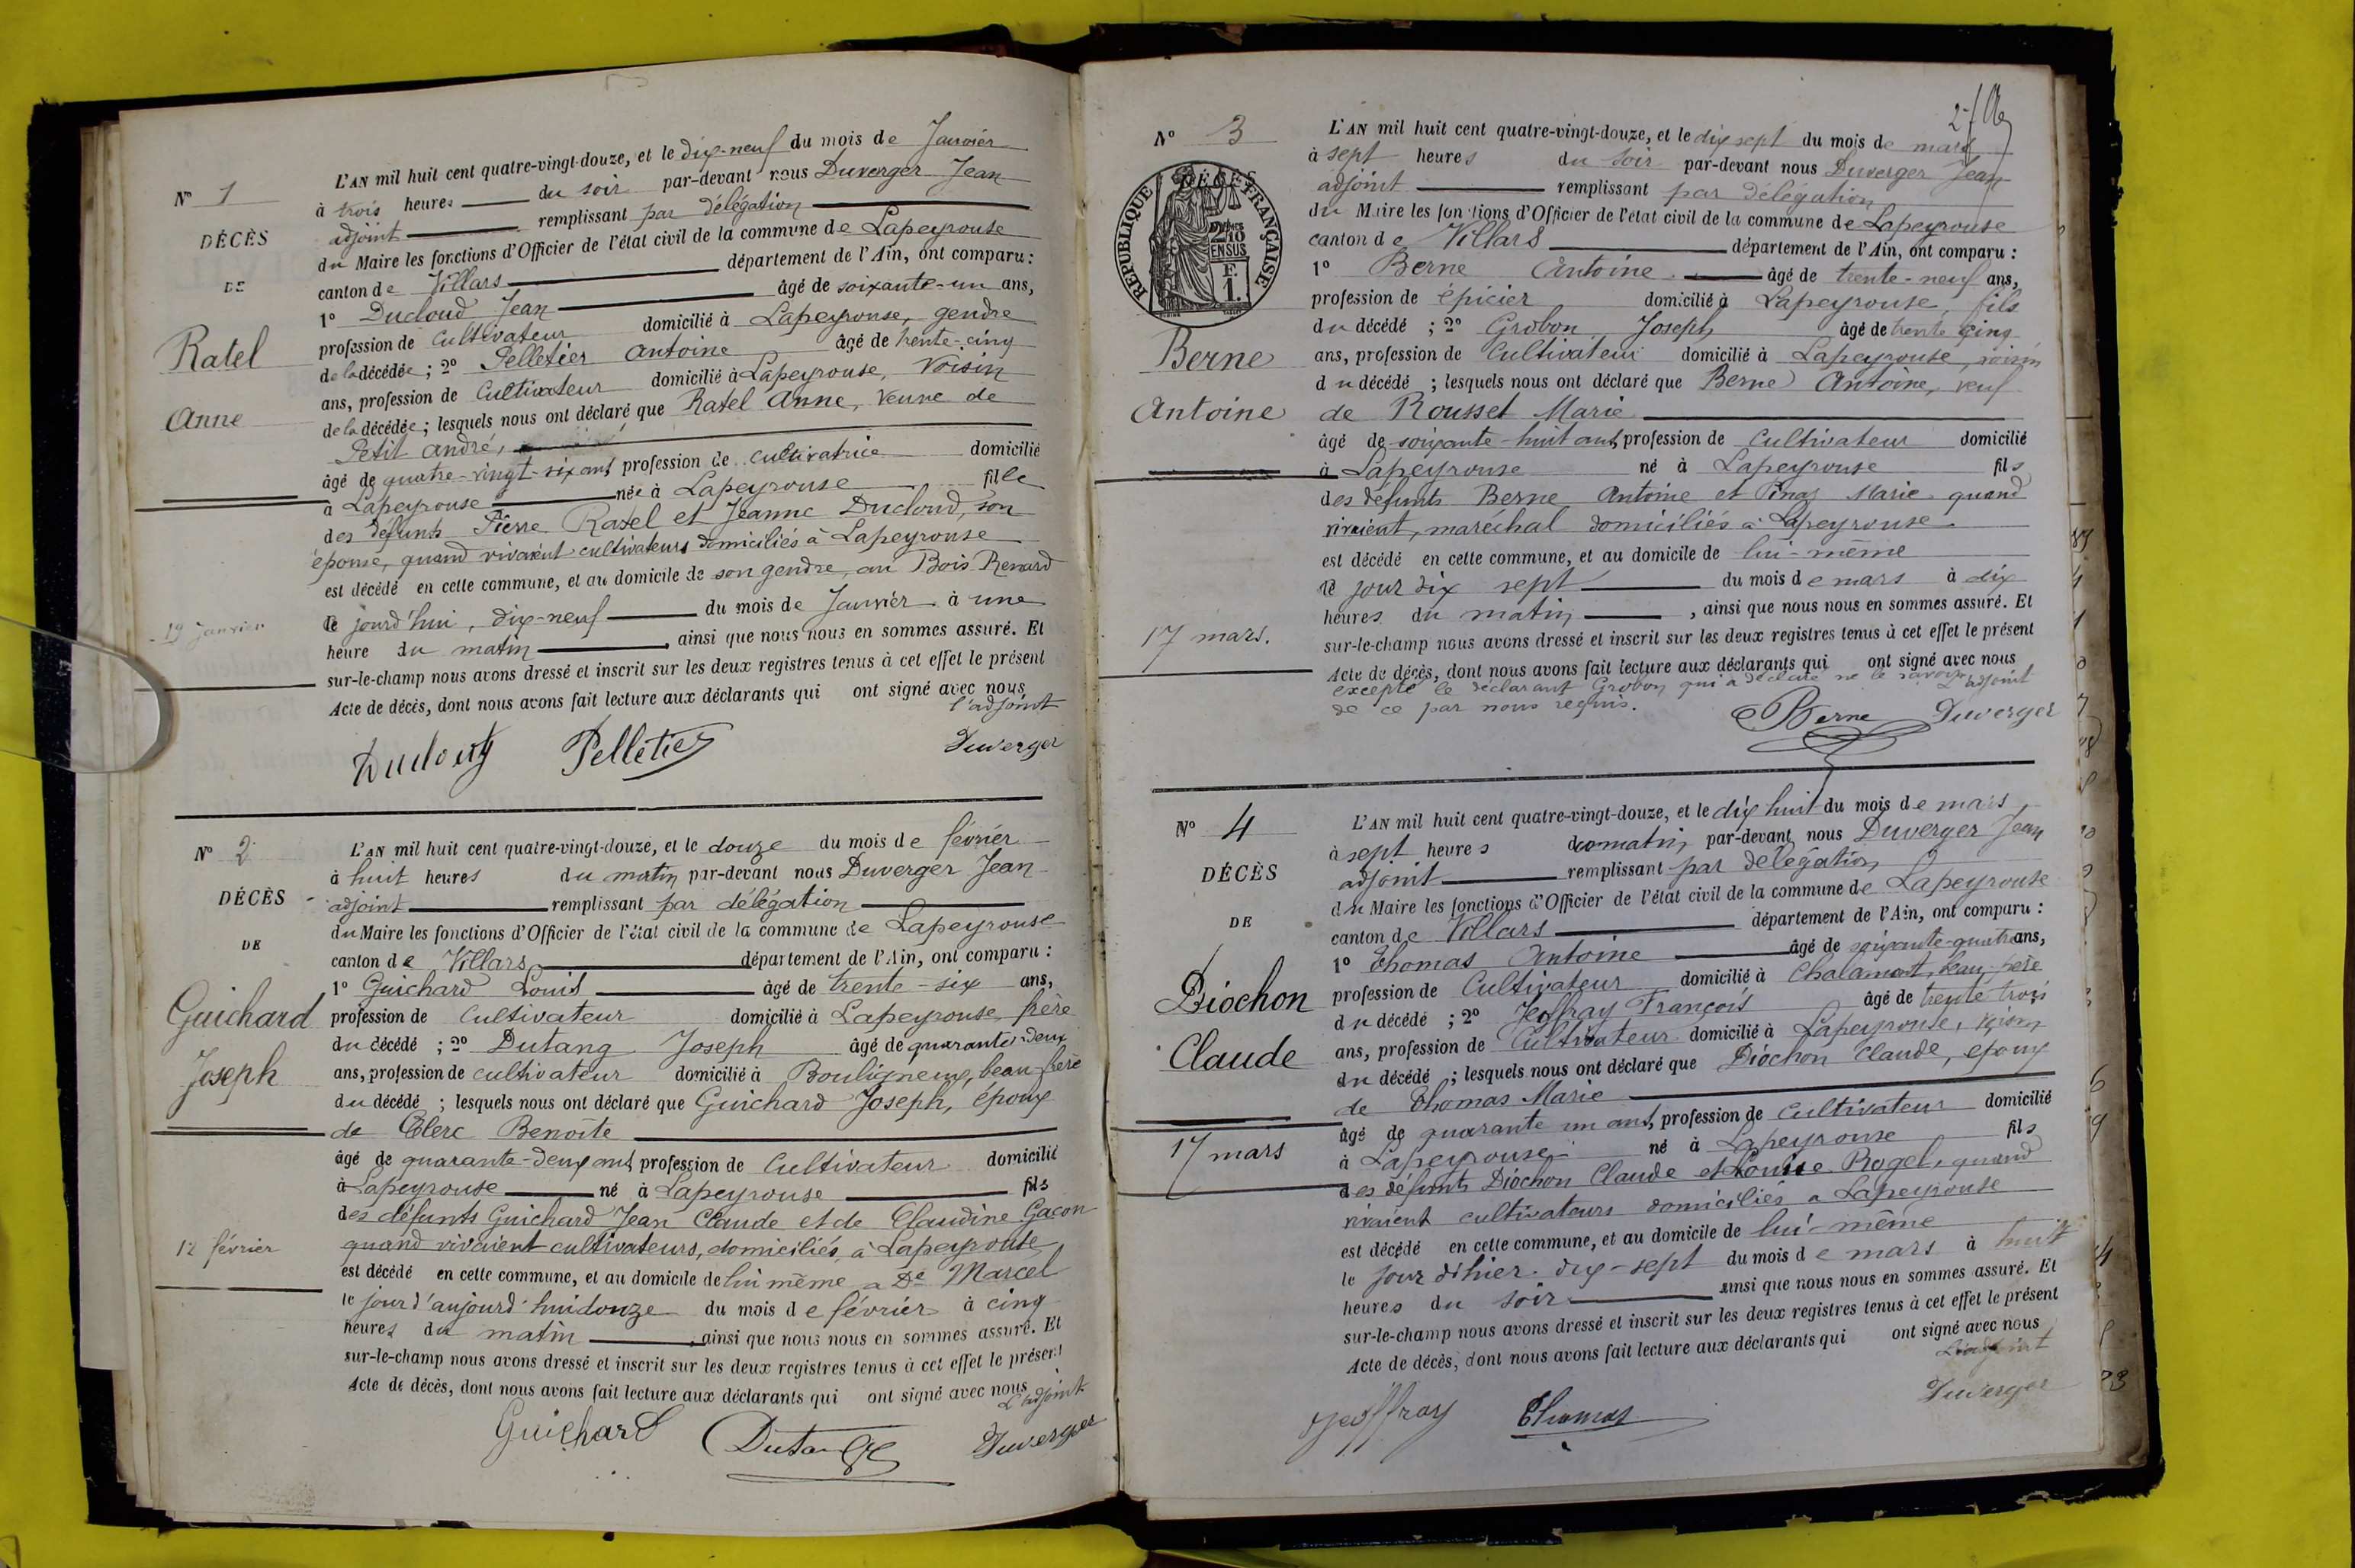 N° 1
DÉCÈS
DE
Ratel
Anne
19 janvier
L'AN mil huit cent quatre-vingt-douze, et le dix-neuf du mois de Janvier
à trois heures du soir par-devant nous Duverger Jean
adjoint remplissant par délégation
du Maire les fonctions d'Officier de l'état civil de la commune de Lapeyrouse
canton de Villars département de l'Ain, ont comparu :
1° Ducloud Jean âgé de soixante-un ans,
profession de Cultivateur domicilié à Lapeyrouse, gendre
de la décédée ; 2° Pelletier Antoine âgé de trente-cinq
ans, profession de Cultivateur domicilié à Lapeyrouse, Voisin
de la décédée ; lesquels nous ont déclaré que Ratel Anne, Veuve de
Petit André,
âgé de quatre-vingt-six ans profession de cultivatrice domicilié
à Lapeyrouse née à Lapeyrouse fille
des défunts Pierre Ratel et Jeanne Ducloud, son
épouse, quand vivaient cultivateurs domiciliés à Lapeyrouse
est décédé en cette commune, et au domicile de son gendre, au Bois Renard
le jourd'hui, dix-neuf du mois de Janvier à une
heure du matin, ainsi que nous nous en sommes assuré. Et
sur-le-champ nous avons dressé et inscrit sur les deux registres tenus à cet effet le présent
Acte de décès, dont nous avons fait lecture aux déclarants qui ont signé avec nous
l'adjoint
Pelletier Duverger
N° 2
DÉCÈS
DE
Guichard
Joseph
12 février
L'AN mil huit cent quatre-vingt-douze, et le douze du mois de février
à huit heures du matin par-devant nous Duverger Jean
adjoint remplissant par délégation
du Maire les fonctions d'Officier de l'état civil de la commune de Lapeyrouse
canton de Villars département de l'Ain, ont comparu :
1° Guichard Louis âgé de trente-six ans,
profession de Cultivateur domicilié à Lapeyrouse frère
du décédé ; 2° Dutang Joseph âgé de quarante-deux
ans, profession de cultivateur domicilié à Bouligneux, beau-frère
du décédé ; lesquels nous ont déclaré que Guichard Joseph, époux
de Clerc Benoite
âgé de quarante-deux ans profession de Cultivateur domicilié
à Lapeyrouse né à Lapeyrouse fils
des défunts Guichard Jean Claude et de Claudine Gacon
quand vivaient cultivateurs, domiciliés à Lapeyrouse
est décédé en cette commune, et au domicile de lui même a De Marcel
le jour d'aujourd'hui douze du mois de février à cinq
heures du matin, ainsi que nous nous en sommes assuré. Et
sur-le-champ nous avons dressé et inscrit sur les deux registres tenus à cet effet le présent
Acte de décès, dont nous avons fait lecture aux déclarants qui ont signé avec nous
L'adjoint
Guichard Dutang Duverger
2
N° 3
RÉPUBLIQUE FRANÇAISE
2/10
EN SUS
F.
1.
Berne
Antoine
17 mars.
L'AN mil huit cent quatre-vingt-douze, et le dix sept du mois de mars
à sept heures du soir par-devant nous Duverger Jean
adjoint remplissant par délégation
du Maire les fonctions d'Officier de l'état civil de la commune de Lapeyrouse
canton de Villars département de l'Ain, ont comparu :
1° Berne Antoine âgé de trente-neuf ans,
profession de épicier domicilié à Lapeyrouse, fils
du décédé ; 2° Grobon Joseph âgé de trente cinq
ans, profession de Cultivateur domicilié à Lapeyrouse, voisin
du décédé ; lesquels nous ont déclaré que Berne Antoine, veuf
de Rousset Marie
âgé de soixante-huit ans, profession de Cultivateur domicilié
à Lapeyrouse né à Lapeyrouse fils
des défunts Berne Antoine et Pinaz Marie quand
vivaient, maréchal domiciliés à Lapeyrouse
est décédé en cette commune, et au domicile de lui-même
le jour dix sept du mois de mars à dix
heures du matin, ainsi que nous nous en sommes assuré. Et
sur-le-champ nous avons dressé et inscrit sur les deux registres tenus à cet effet le présent
Acte de décès, dont nous avons fait lecture aux déclarants qui ont signé avec nous
excepté le déclarant Grobon qui a déclaré ne le savoir
de ce par nous requis. L'adjoint
Berne Duverger
N° 4
DÉCÈS
DE
Diochon
Claude
17 mars
L'AN mil huit cent quatre-vingt-douze, et le dix huit du mois de mars,
à sept heures du matin par-devant nous Duverger Jean
adjoint remplissant par délégation
du Maire les fonctions d'Officier de l'état civil de la commune de Lapeyrouse
canton de Villars département de l'Ain, ont comparu :
1° Thomas Antoine âgé de soixante-quatre ans,
profession de Cultivateur domicilié à Chalamont, beau-père
du décédé ; 2° Jeoffray François âgé de trente trois
ans, profession de Cultivateur domicilié à Lapeyrouse, voisin
du décédé ; lesquels nous ont déclaré que Diochon Claude, époux
de Thomas Marie
âgé de quarante un ans, profession de Cultivateur domicilié
à Lapeyrouse né à Lapeyrouse fils
des défunts Diochon Claude et Louise Rogel, quand
vivaient cultivateurs domiciliés a Lapeyrouse
est décédé en cette commune, et au domicile de lui-même
le jour d'hier dix-sept du mois de mars à huit
heures du soir ainsi que nous nous en sommes assuré. Et
sur-le-champ nous avons dressé et inscrit sur les deux registres tenus à cet effet le présent
Acte de décès, dont nous avons fait lecture aux déclarants qui ont signé avec nous
L'adjoint
Jeoffray Thomas Duverger